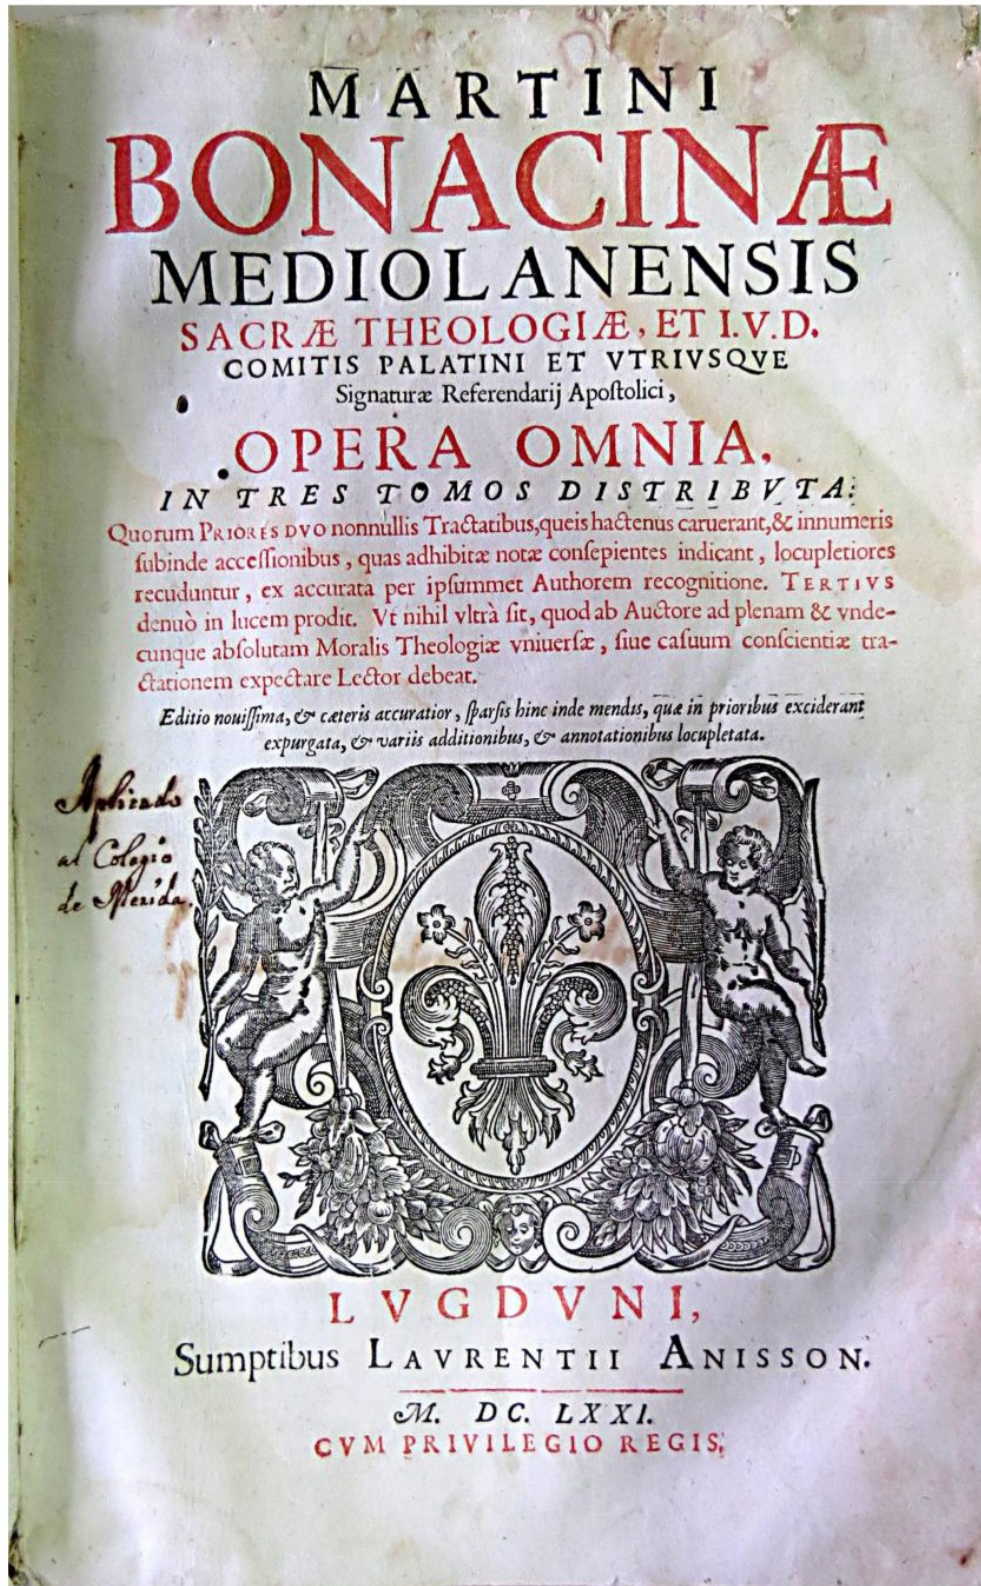 MARTINI
BONACINÆ
MEDIOLANENSIS
SACRÆ THEOLOGIÆ, ET I.V.D.
COMITIS PALATINI ET VTRIVSQVE
Signaturæ Referendarij Apoſtolici,
OPERA OMNIA,
IN TRES TOMOS DISTRIBVTA:
Quorum PRIORES DVO nonnullis Tractatibus, queis hactenus caruerant, & innumeris
ſubinde acceſſionibus, quas adhibitæ notæ conſepientes indicant, locupletiores
recuduntur, ex accurata per ipſummet Authorem recognitione. TERTIVS
denuò in lucem prodit. Vt nihil vltrà ſit, quod ab Auctore ad plenam & vnde-
cunque abſolutam Moralis Theologiæ vniuerſæ, ſiue caſuum conſcientiæ tra-
ctationem expectare Lector debeat.
Editio nouiſſima, & cæteris accuratior, ſparſis hinc inde mendis, quæ in prioribus exciderant
expurgata, & variis additionibus, & annotationibus locupletata.
Aplicado
al Colegio
de Merida.
LVGDVNI,
Sumptibus LAVRENTII ANISSON.
M. DC. LXXI.
CVM PRIVILEGIO REGIS,